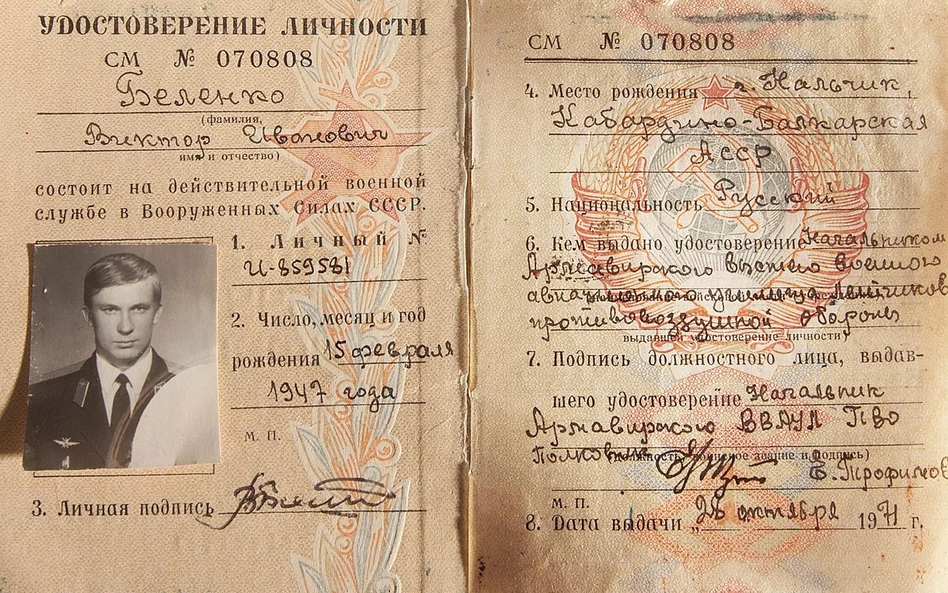 УДОСТОВЕРЕНИЕ ЛИЧНОСТИ
СМ № 070808
Беленко
(фамилия,
Виктор Иванович
имя и отчество)
состоит на действительной военной
службе в Вооруженных Силах СССР.
1. Личный №
И-859581
2. Число, месяц и год
рождения 15 февраля
1947 года
М. П.
3. Личная подпись
СМ № 070808
4. Место рождения г. Нальчик,
Кабардино-Балкарская
АССР
5. Национальность Русский
6. Кем выдано удостоверение Начальником
Армавирского высшего военного
авиационного училища лётчиков
противовоздушной обороны
выдавшей удостоверение личности)
7. Подпись должностного лица, выдав-
шего удостоверение Начальник
Армавирского ВВАУЛ ПВО
полковник (должность, воинское звание и подпись)
Е. Трофимов
М. П.
8. Дата выдачи „28 октября 1971 г.